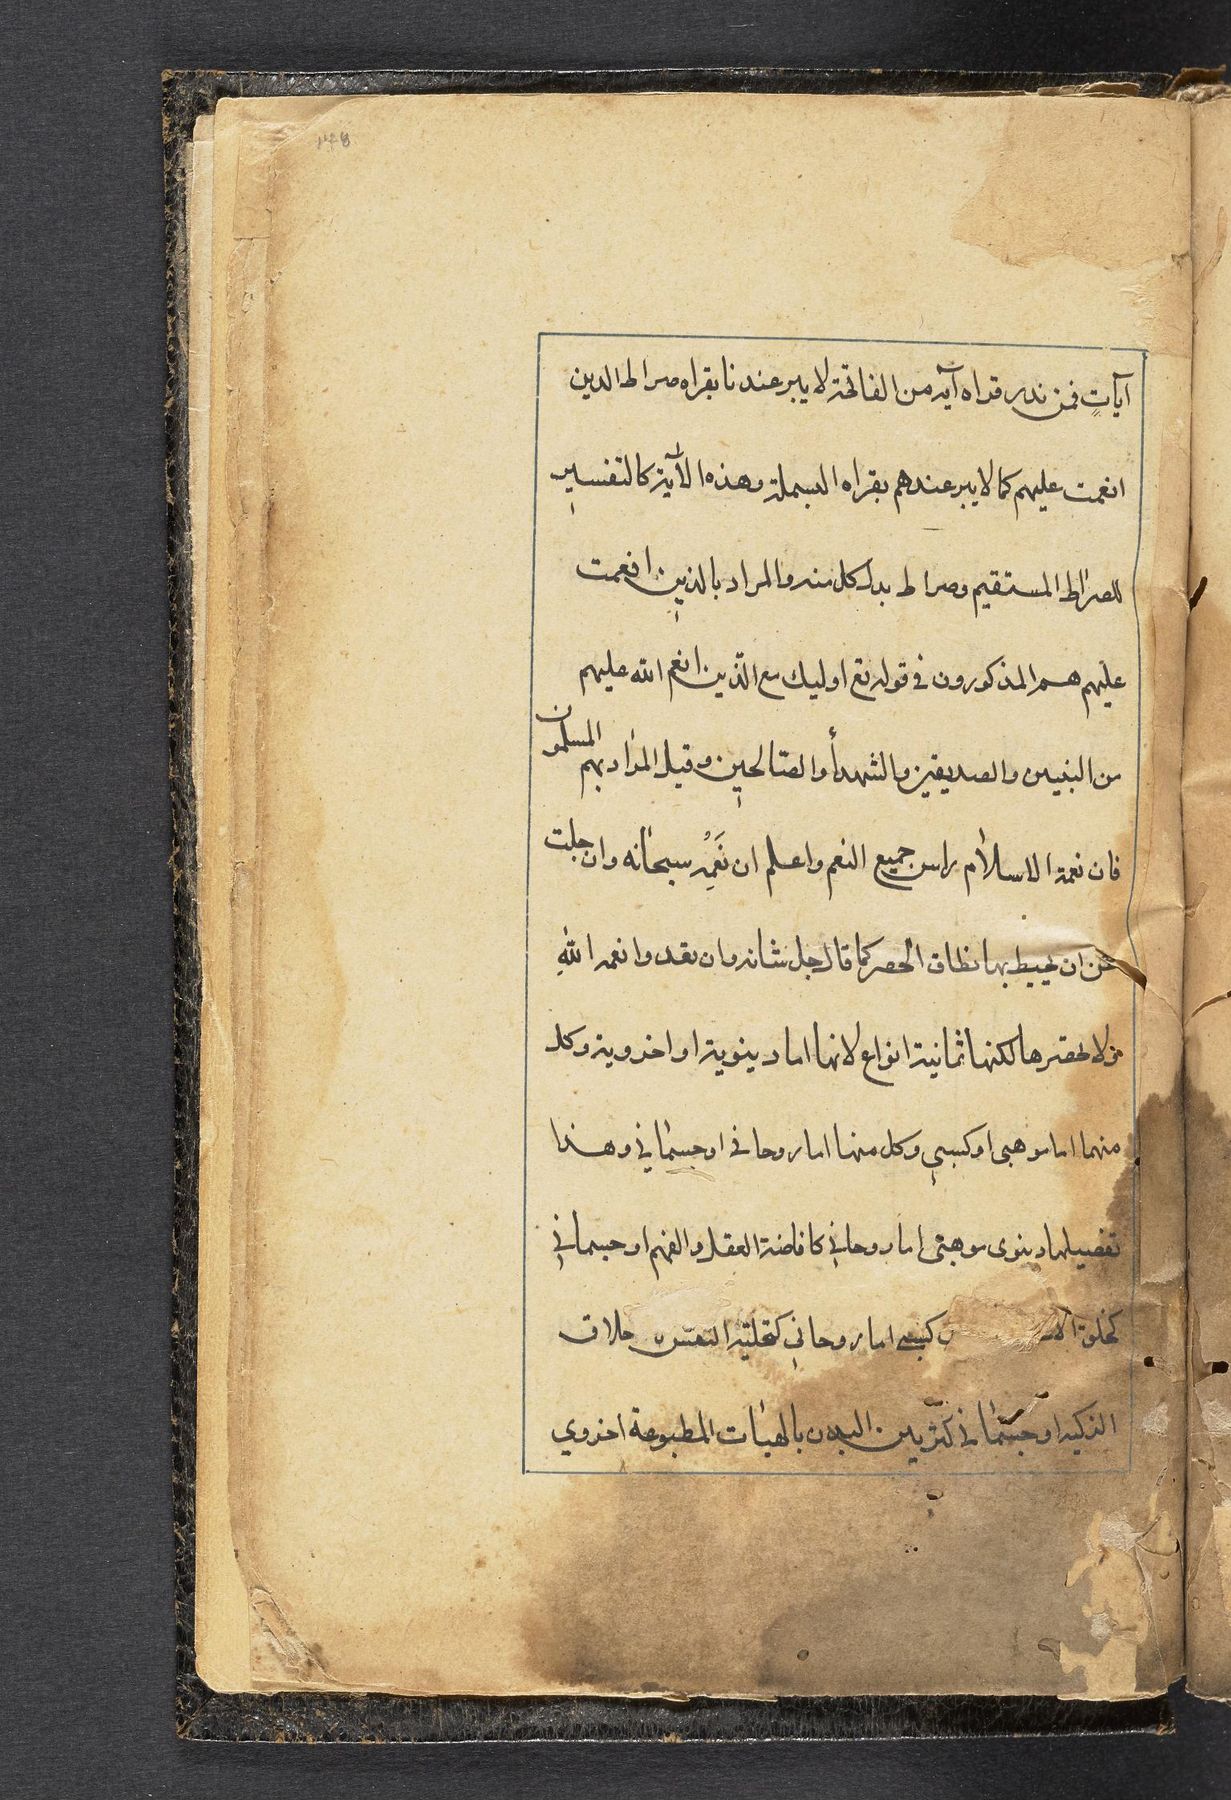 آيات فمن نذر قراه آية من الفاتحة لا يبر عندنا بقراه صراط الدين
انعمت عليهم كما لا يبر عندهم بقراه البسملة وهذه الآية كالتفسير
للصراط المستقيم وصراط بدل كل منه والمراد بالذين انعمت
عليهم هم المذكورون في قوله تع اوليك مع الذين انعم الله عليهم
من النبيين والصديقين والشهدأ والصالحين وقيل المراد بهم المسلمون
فان نعمة الاسلام راس جميع النعم واعلم ان نعمه سبحانه وان جلت
عن ان يحيط بها نطاق الحصر كما قال جل شانه وان تعدوا نعمه الله
لا تحصوها لكنها ثمانية انواع لانها اما دينوية او اخروية وكل
منهما اما موهبى او كسبي وكل منها اما روحاني او جسماني وهذا
تفصيلها دينوى موهبتى اما روحاني كافاضة العقل والفهم او جسماني
كخلق كسبى اما روحاني كتحلية النفس خلاق
الزكيه او جسماني كتزيين البدن بالهيات المطبوعة اخروي